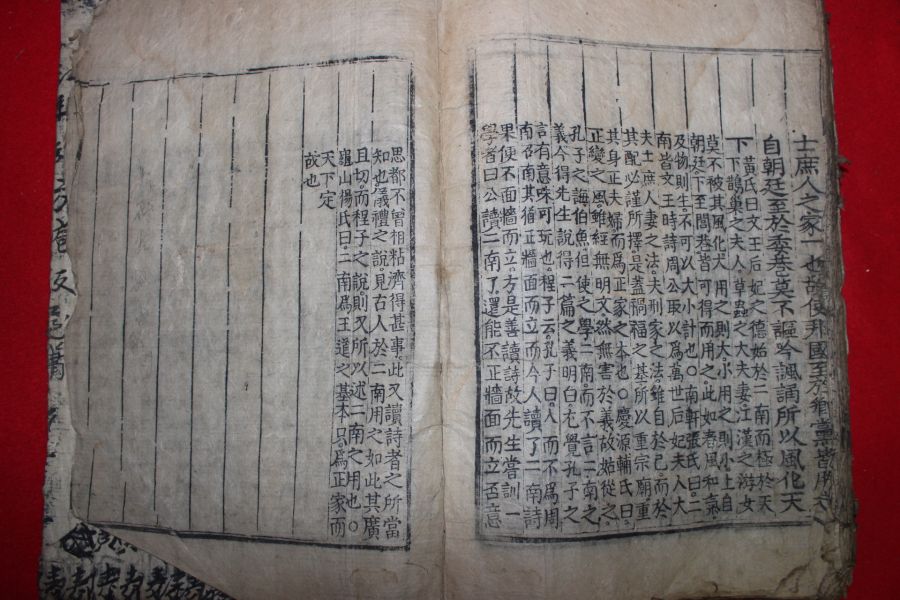 士庶人之家一也故使邦國至於鄕黨皆用之
自朝廷至於委巷莫不謳吟諷誦所以風化天
下 黃氏曰文王后妃之德始於二南而極於天
下鵲巢之夫人草蟲之大夫妻江漢之游女
莫不被其風化大用之則大小用之則小上自
朝廷下至閭巷皆可得而用之此如春風和氣
及物則生不可以大小計也○南軒張氏曰二
南皆文王時詩周公取以爲萬世后妃夫人大
夫士庶人妻之法夫刑家之法雖自於己而於
其配必謹所擇是蓋禍福之基所以重宗廟重
其身正夫婦而爲正家之本也○慶源輔氏曰
正變之風雖經無明文然無害於義故姑從之
孔子之誨伯魚但使之學二南而不言二南之
義今得先生說得二篇之義明白尤覺孔子之
言有意味可玩也程子云孔子曰人而不爲周
南召南其猶正牆面而立而今人讀了二南詩
果便不面牆而立方是善讀詩故先生嘗訓一
學者曰公讀二南了還能不正牆面而立否意
思都不曾相粘濟得甚事此又讀詩者之所當
知也儀禮之說見古人於二南用之如此其廣
且切而程子之說則又所以述二南之用也○
龜山楊氏曰二南爲王道之基本只爲正家而
天下定
故也